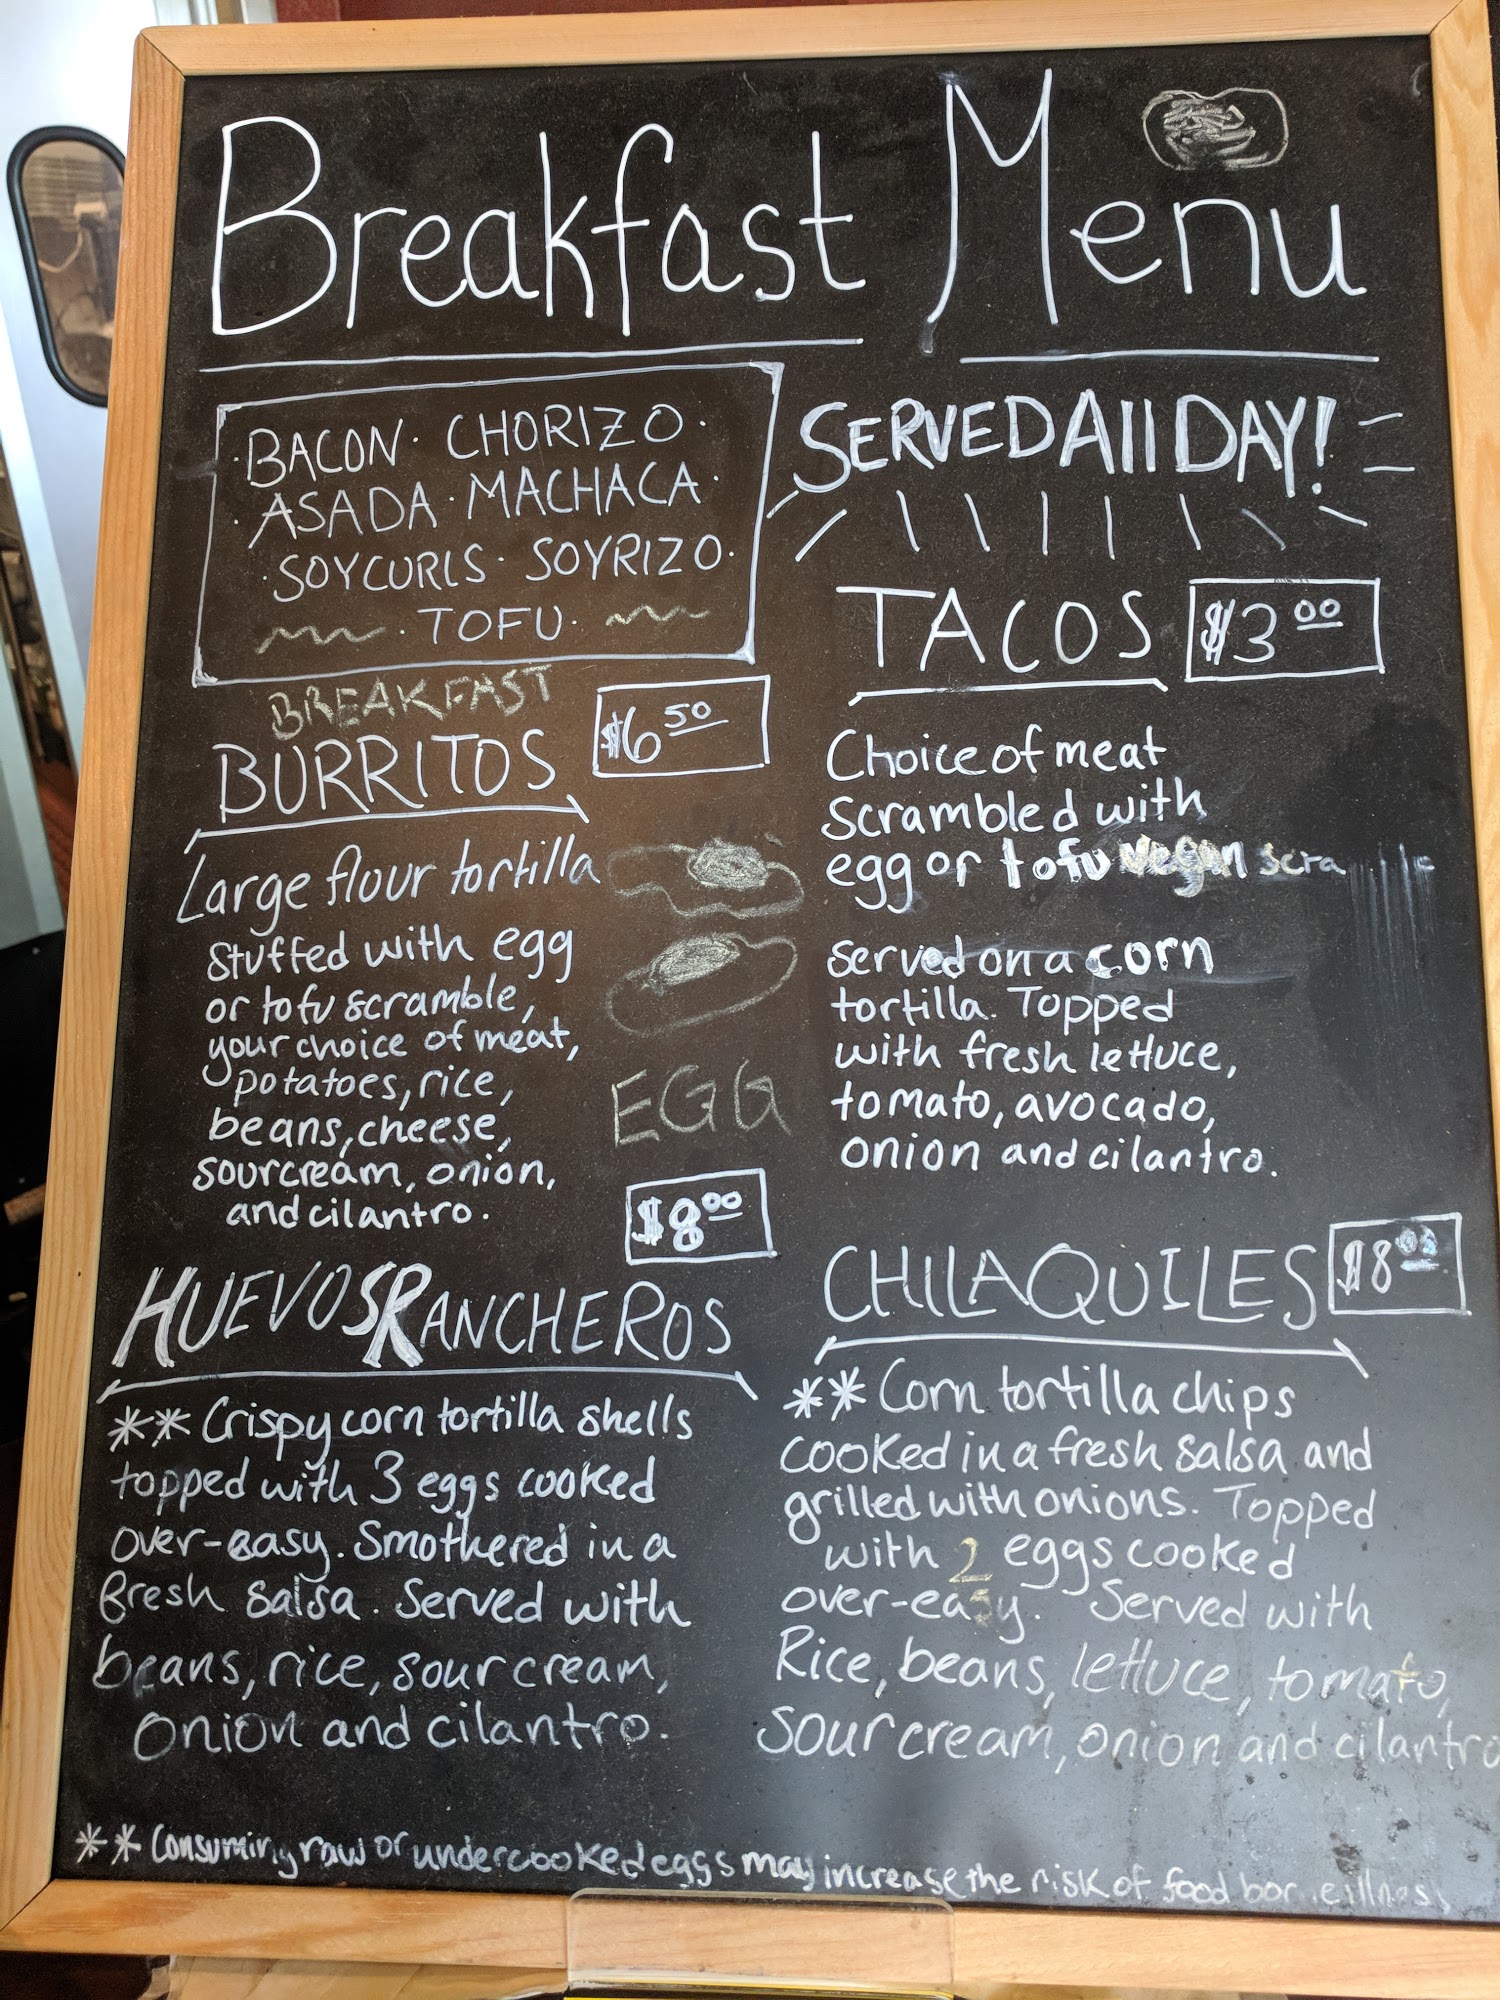 Breakfast Menu
BACON · CHORIZO ·
· ASADA · MACHACA ·
· SOYCURLS · SOYRIZO ·
· TOFU ·
SERVED All DAY!
BREAKFAST
BURRITOS
$6 50
Large flour tortilla
stuffed with egg
or tofu scramble,
your choice of meat,
potatoes, rice,
beans, cheese,
sour cream, onion,
and cilantro.
EGG
TACOS
$3 00
Choice of meat
Scrambled with
egg or tofu vegan scra
served on a corn
tortilla. Topped
with fresh lettuce,
tomato, avocado,
onion and cilantro.
$8 00
HUEVOS RANCHEROS
** Crispy corn tortilla shells
topped with 3 eggs cooked
over-easy. Smothered in a
fresh salsa. Served with
beans, rice, sour cream,
onion and cilantro.
CHILAQUILES
$8
** Corn tortilla chips
cooked in a fresh salsa and
grilled with onions. Topped
with 2 eggs cooked
over-easy. Served with
Rice, beans, lettuce, tomato,
Sour cream, onion and cilantro
** Consuming raw or undercooked eggs may increase the risk of food borne illness.